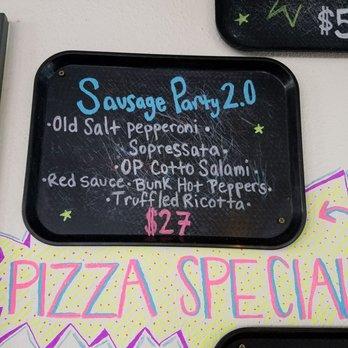 $5
Sausage Party 2.0
•Old Salt pepperoni•
Sopressata•
•OP Cotto Salami
•Red sauce•Bunk Hot Peppers•
•Truffled Ricotta•
$27
PIZZA SPECIA